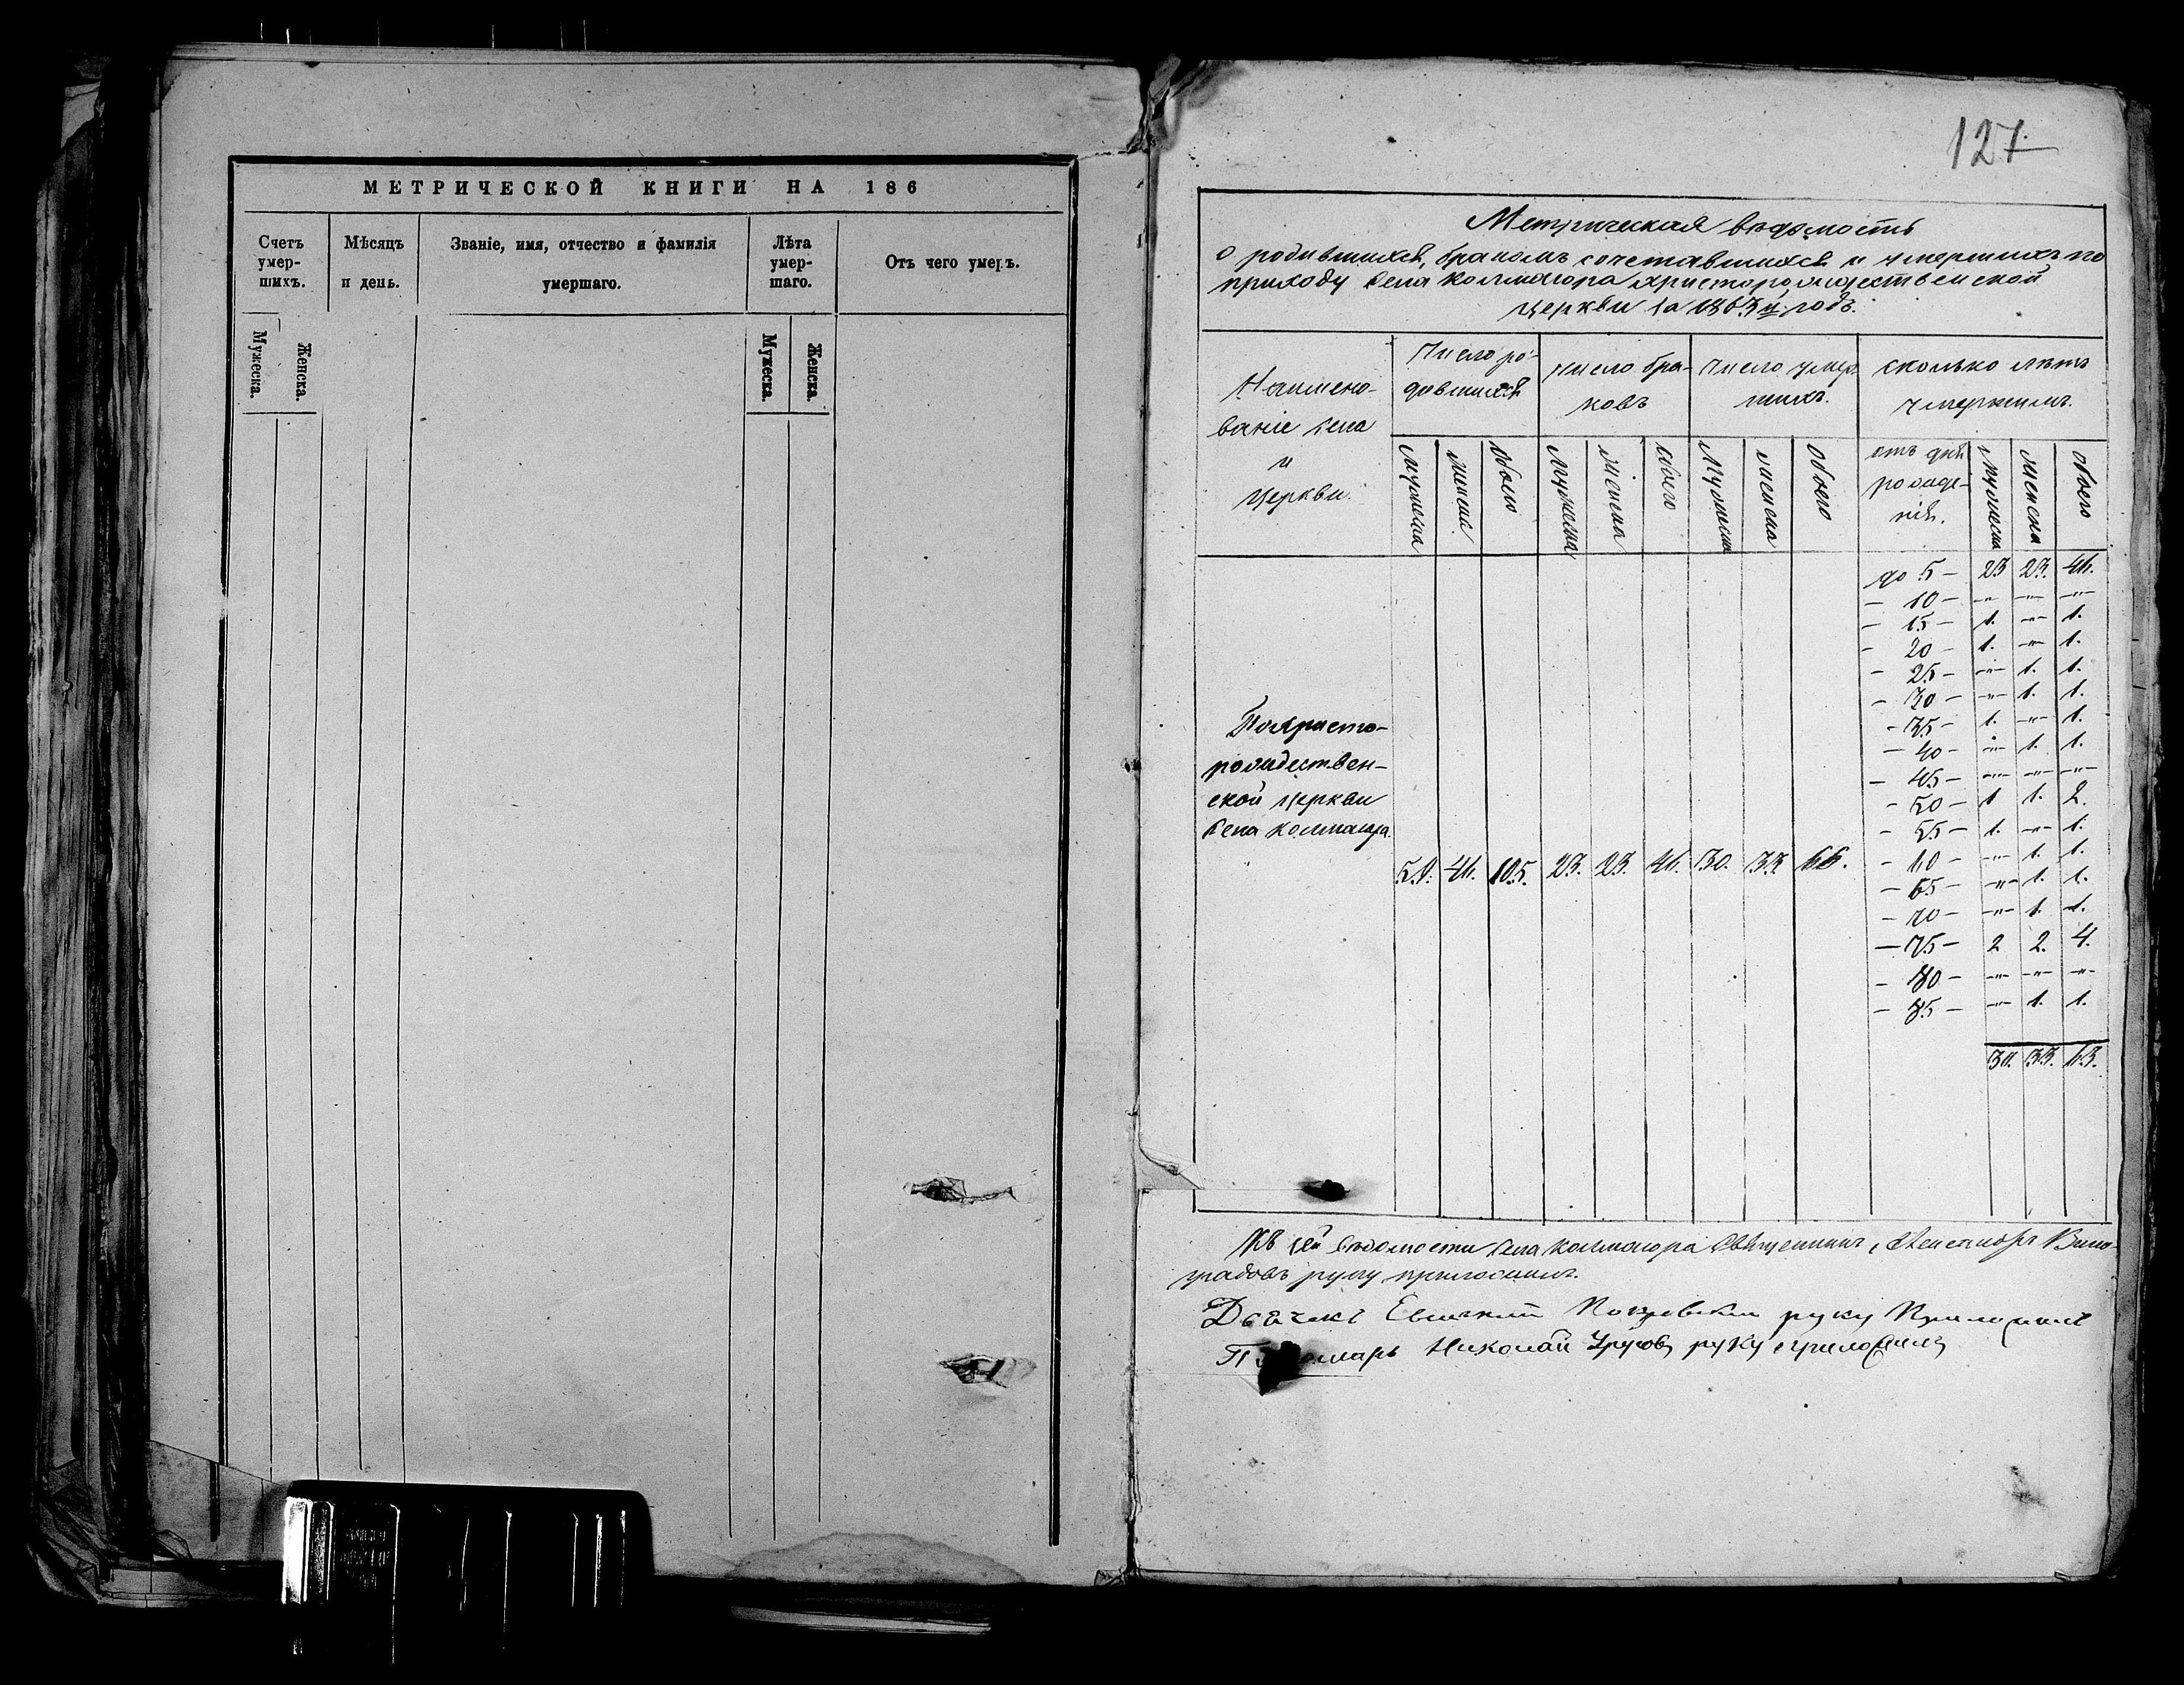 МЕТРИЧЕСКОЙ КНИГИ НА 186
Счетъ умер- шихъ.
Мѣсяцъ и день.
Званіе, имя, отчество и фамилія умершаго.
Лѣта умер- шаго.
Отъ чего умеръ.
Мужеска. Женска.
Мужеска. Женска.
127
Метрическая вѣдомость
о родившихся, бракомъ сочетавшихся и умершихъ по
приходу села Колмагора Христорождественской
церкви за 1863й годъ.
Наимено-
ваніе села
и
церкви.
Число ро-
дившихся
число бра-
ковъ
число умер-
шихъ.
сколько лѣтъ
умершимъ.
Мужеска Женска Обоего Мужеска Женска Обоего Мужеска Женска Обоего
отъ дня
рожде-
нія.
Мужеска Женска Обоего
до 5 - 23 23. 46.
- 10 - -"- -"- -"-
- 15 - 1. -"- 1.
- 20 - 1. -"- 1.
- 25 - -"- 1. 1.
- 30 - -"- 1. 1.
- 35 - 1. -"- 1.
- 40 - -"- 1. 1.
- 45 - -"- -"- -"-
- 50 - 1 1. 2.
- 55 - 1. -"- 1.
- 60 - -"- 1. 1.
- 65 - -"- 1. 1.
- 70 - -"- 1. 1.
- 75 - 2 2. 4.
- 80 - -"- -"- -"-
- 85 - -"- 1. 1.
30. 33. 63.
По Христо-
рождествен-
ской церкви
села Колмагора.
46. 105. 23. 23. 46. 30. 33
Къ сей вѣдомости села Колмагора Священникъ Александръ Вино-
градовъ руку приложилъ.
Дьячекъ Покровскій руку Приложилъ
Николай руку приложилъ